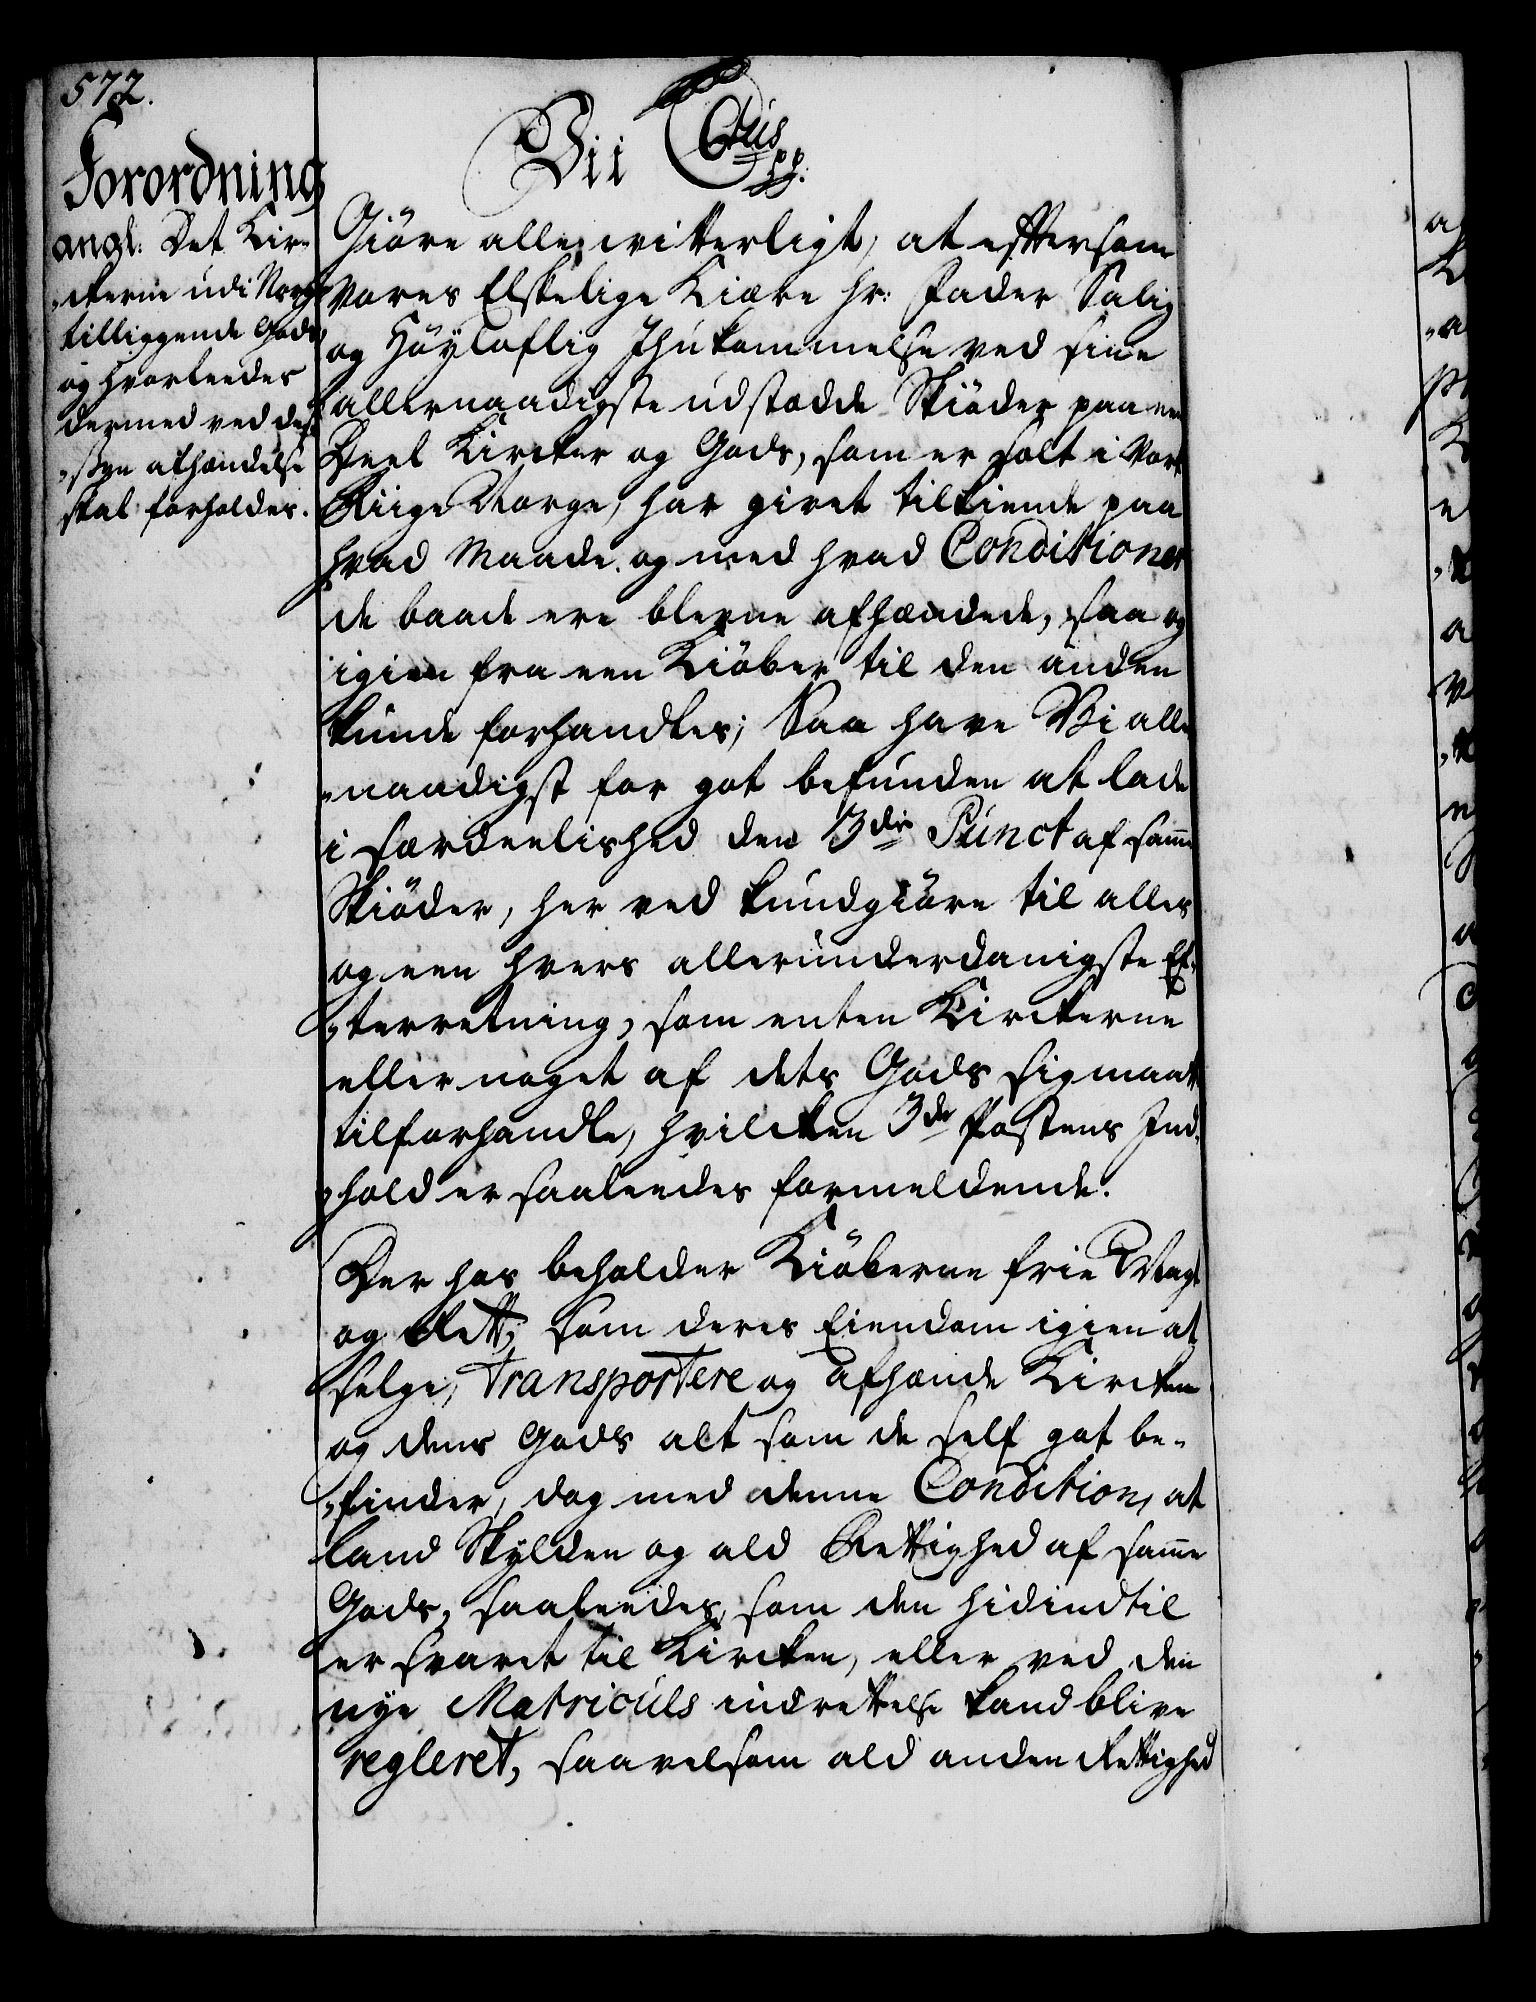 572.
Forordning
angl: Det Kir-
-ckerne udi Norge
tilliggende Gods
og hvorleedes
dermed ved des-
-sen afhændelse
skal forholdes.
Vii C6tus pp.
Giöre alle witterligt, at eftersom
Vores Elskelige Kiære Hr: Fader Salig
og Höyloflig Ihukommelse ved sine
allernaadigste udstædde Skiöder paa een
Deel Kircker og Gods, som er solt i Vort
Riige Norge, har givet tilkiende paa
hvad Maade og med hvad Conditioner
de baade ere blevne afhændede, saa og
igien fra een Kiöber til den anden
kunde forhandles; Saa have Vi aller-
-naadigst for got befunden at lade
i særdeelished den 3die Punct af samme
Skiöder, her ved kundgiöre til alles
og een hvers allerunderdanigste Ef-
-terretning, som enten Kirckerne
eller noget af dets Gods sig maatte
tilforhandle, hvilcken 3die Postens Ind-
-hold er saaleedes formeldende.
Der hos beholder Kiöberne frie Magt
og Rett, som deres Eiendom igien at
selge, transportere og afhænde Kircken
og dens Gods alt som de self got be-
-finder, dog med denne Condition, at
land Skylden og ald Rettighed af samme
Gods, saaleedes, som den hidindtil
er svaret til Kircken, eller ved den
nye Matriculs indrettelse kand blive
regleret, saavelsom ald anden Rettighed